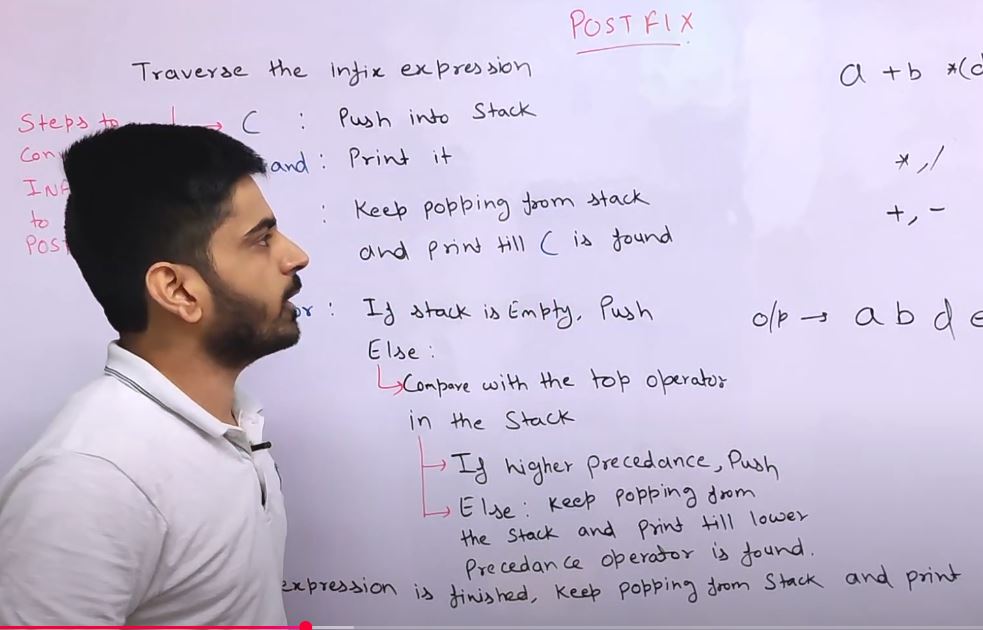 POSTFIX
Traverse the infix expression
a + b *(d
Steps to
( : Push into Stack
and : Print it
*, /
to
: Keep popping from stack
and print till ( is found
+, -
or : If stack is Empty, Push
Else :
Compare with the top operator
in the Stack
If higher precedance, Push
Else : Keep popping from
the stack and print till lower
precedance operator is found.
expression is finished, keep popping from Stack and print
o/p → a b d e